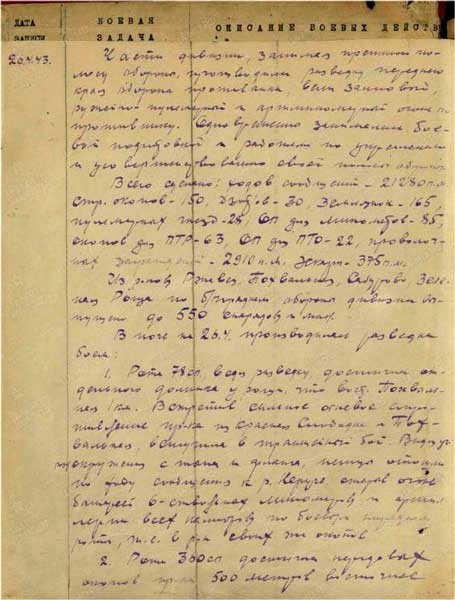 ДАТА ЗАПИСИ
БОЕВАЯ ЗАДАЧА
ОПИСАНИЕ БОЕВЫХ ДЕЙСТВ
26.4.43.
Части дивизии, занимая прежнюю по-
лосу обороны, производили разведку переднего
края обороны противника, вели залповый,
ружейный пулеметный и артминометный огонь по
противнику. Одновременно занимались бое-
вой подготовкой и работами по укреплению
и усовершенствованию своей полосы обороны.
Всего сделано: ходов сообщений - 21280 п.м.
стр. окопов - 150, Дзотов - 30, землянок - 165,
пулеметных гнезд - 28, ОП для минометов - 85,
окопов для ПТР - 63, ОП для ПТО - 22, проволоч-
ных заграждений - 2910 п.м. Эскарп - 375 п.м.
Из р-нов Ржавец, Похвальная, Сабурово, Зеле-
ная Роща по боевым порядкам обороны дивизии вы-
пущено до 550 снарядов и мин.
В ночь на 26.4. производилась разведка
боем:
1. Рота 78сп. ведя разведку, достигла от-
дельного домика у рощи, что вост. Похваль-
ная 1 км. Встретив сильное огневое сопро-
тивление пр-ка из Красная Слободка и Пох-
вальная, вступила в траншейный бой. Видя уг
окружения с тыла и фланга, начала отходить
по ходу сообщения к р. Неручь, открыв огонь
батарей 6-ствольных минометов и артил-
лерии всех калибров по боевым порядкам
роты, т.е. в р-н своих же окопов.
2. Рота 300сп достигла передовых
окопов пр-ка 500 метров восточнее